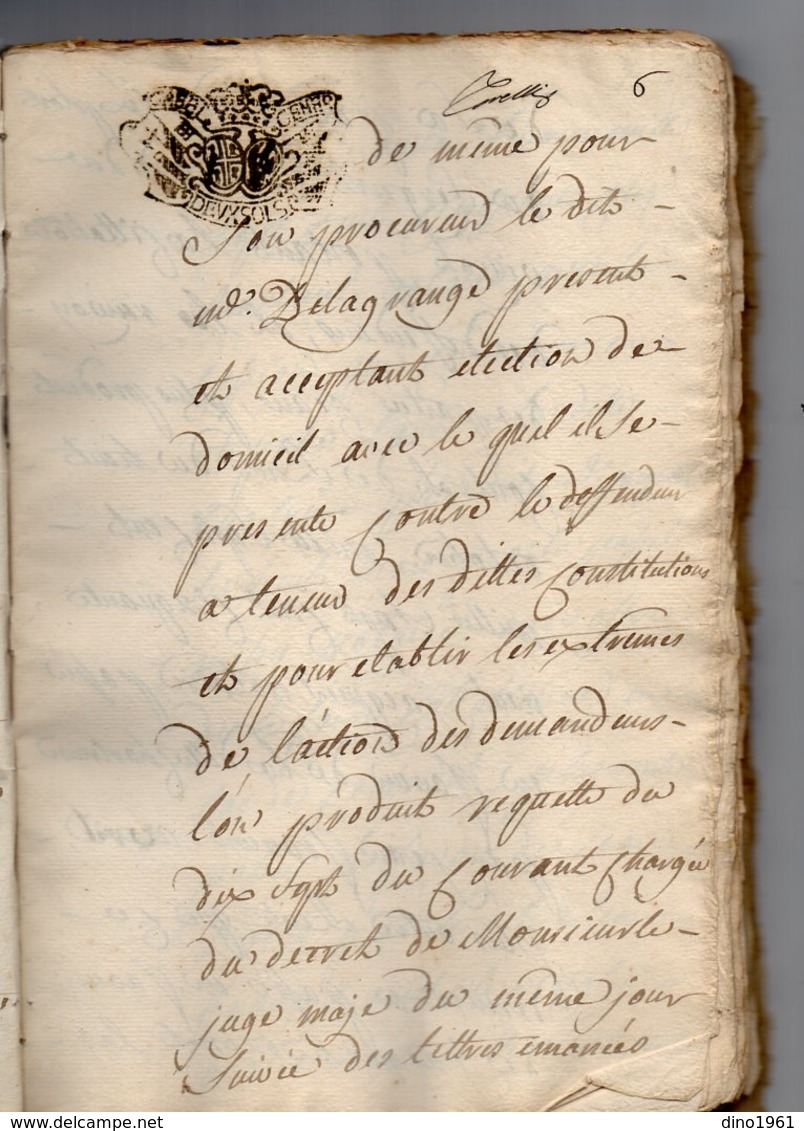 6
DEUX SOLS
de même pour
son procureur le dit
md. Delagrange present
et acceptant election de
domicil avec le quel il se
presente contre le deffendeur
a teneur des dittes Constitutions
et pour etablir les extremes
de l'action des demandeurs
l'on produit requette du
dix sept du Courant Chargée
du decret de Monsieur le
juge maje du même jour
suivie des lettres emanées
delcampe.net
dino1961